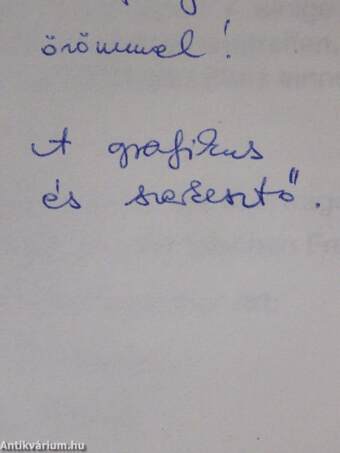 örömmel!
A grafikus
és szerkesztő.
Antikvárium.hu